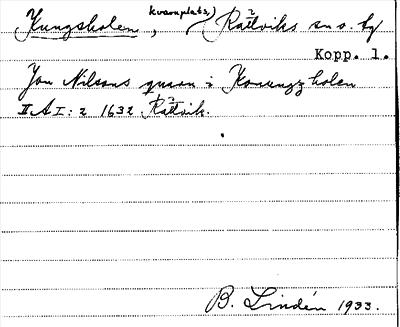 Kungsholen, kvarnplats, Rättviks sn o. by
Kopp. l.
Jon Nilsons quarn i Konungzholen
II A I: 2 1632. Rättvik.
B. Lindén 1933.